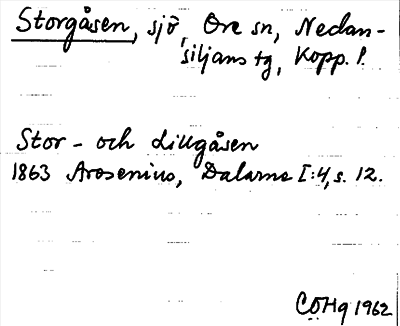 Storgåsen, sjö, Ore sn, Nedan-
siljans tg, Kopp. l.
Stor- och Lillgåsen
1863 Arosenius, Dalarne I:4, s. 12.
COHg 1962